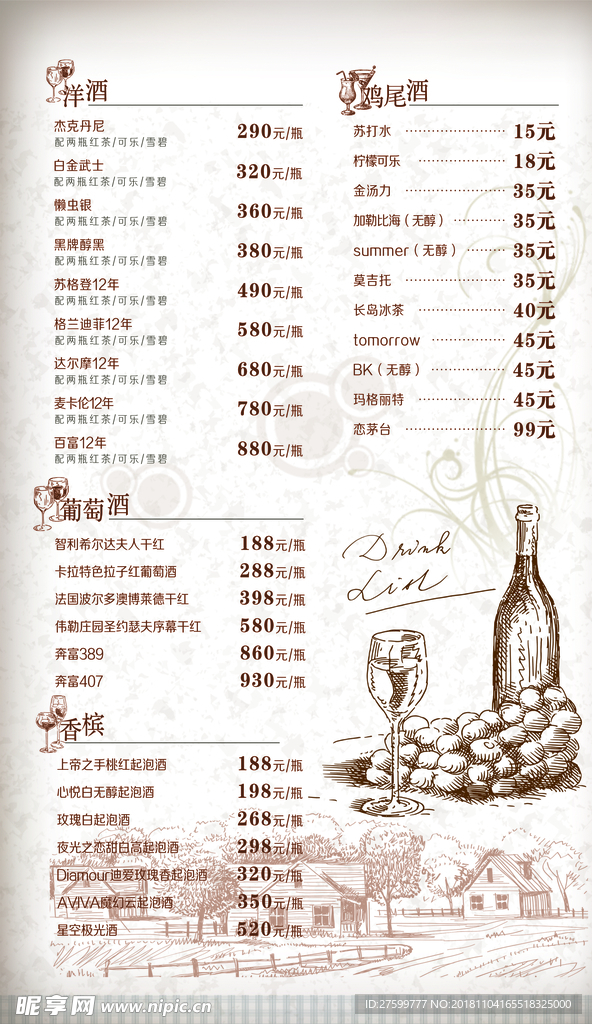 洋酒
杰克丹尼 290元/瓶
配两瓶红茶/可乐/雪碧
白金武士 320元/瓶
配两瓶红茶/可乐/雪碧
懒虫银 360元/瓶
配两瓶红茶/可乐/雪碧
黑牌醇黑 380元/瓶
配两瓶红茶/可乐/雪碧
苏格登12年 490元/瓶
配两瓶红茶/可乐/雪碧
格兰迪菲12年 580元/瓶
配两瓶红茶/可乐/雪碧
达尔摩12年 680元/瓶
配两瓶红茶/可乐/雪碧
麦卡伦12年 780元/瓶
配两瓶红茶/可乐/雪碧
百富12年 880元/瓶
配两瓶红茶/可乐/雪碧
葡萄酒
智利希尔达夫人干红 188元/瓶
卡拉特色拉子红葡萄酒 288元/瓶
法国波尔多澳博莱德干红 398元/瓶
伟勒庄园圣约瑟夫序幕干红 580元/瓶
奔富389 860元/瓶
奔富407 930元/瓶
香槟
上帝之手桃红起泡酒 188元/瓶
心悦白无醇起泡酒 198元/瓶
玫瑰白起泡酒 268元/瓶
夜光之恋甜白高起泡酒 298元/瓶
Diamour迪爱玫瑰香起泡酒 320元/瓶
AVIVA魔幻云起泡酒 350元/瓶
星空极光酒 520元/瓶
鸡尾酒
苏打水 ·················· 15元
柠檬可乐 ················ 18元
金汤力 ·················· 35元
加勒比海（无醇） ········· 35元
summer（无醇） ······· 35元
莫吉托 ·················· 35元
长岛冰茶 ················ 40元
tomorrow ············· 45元
BK（无醇） ············· 45元
玛格丽特 ················ 45元
恋茅台 ·················· 99元
Drink
List
昵享网 www.nipic.cn
ID:27599777 NO:20181104165518325000